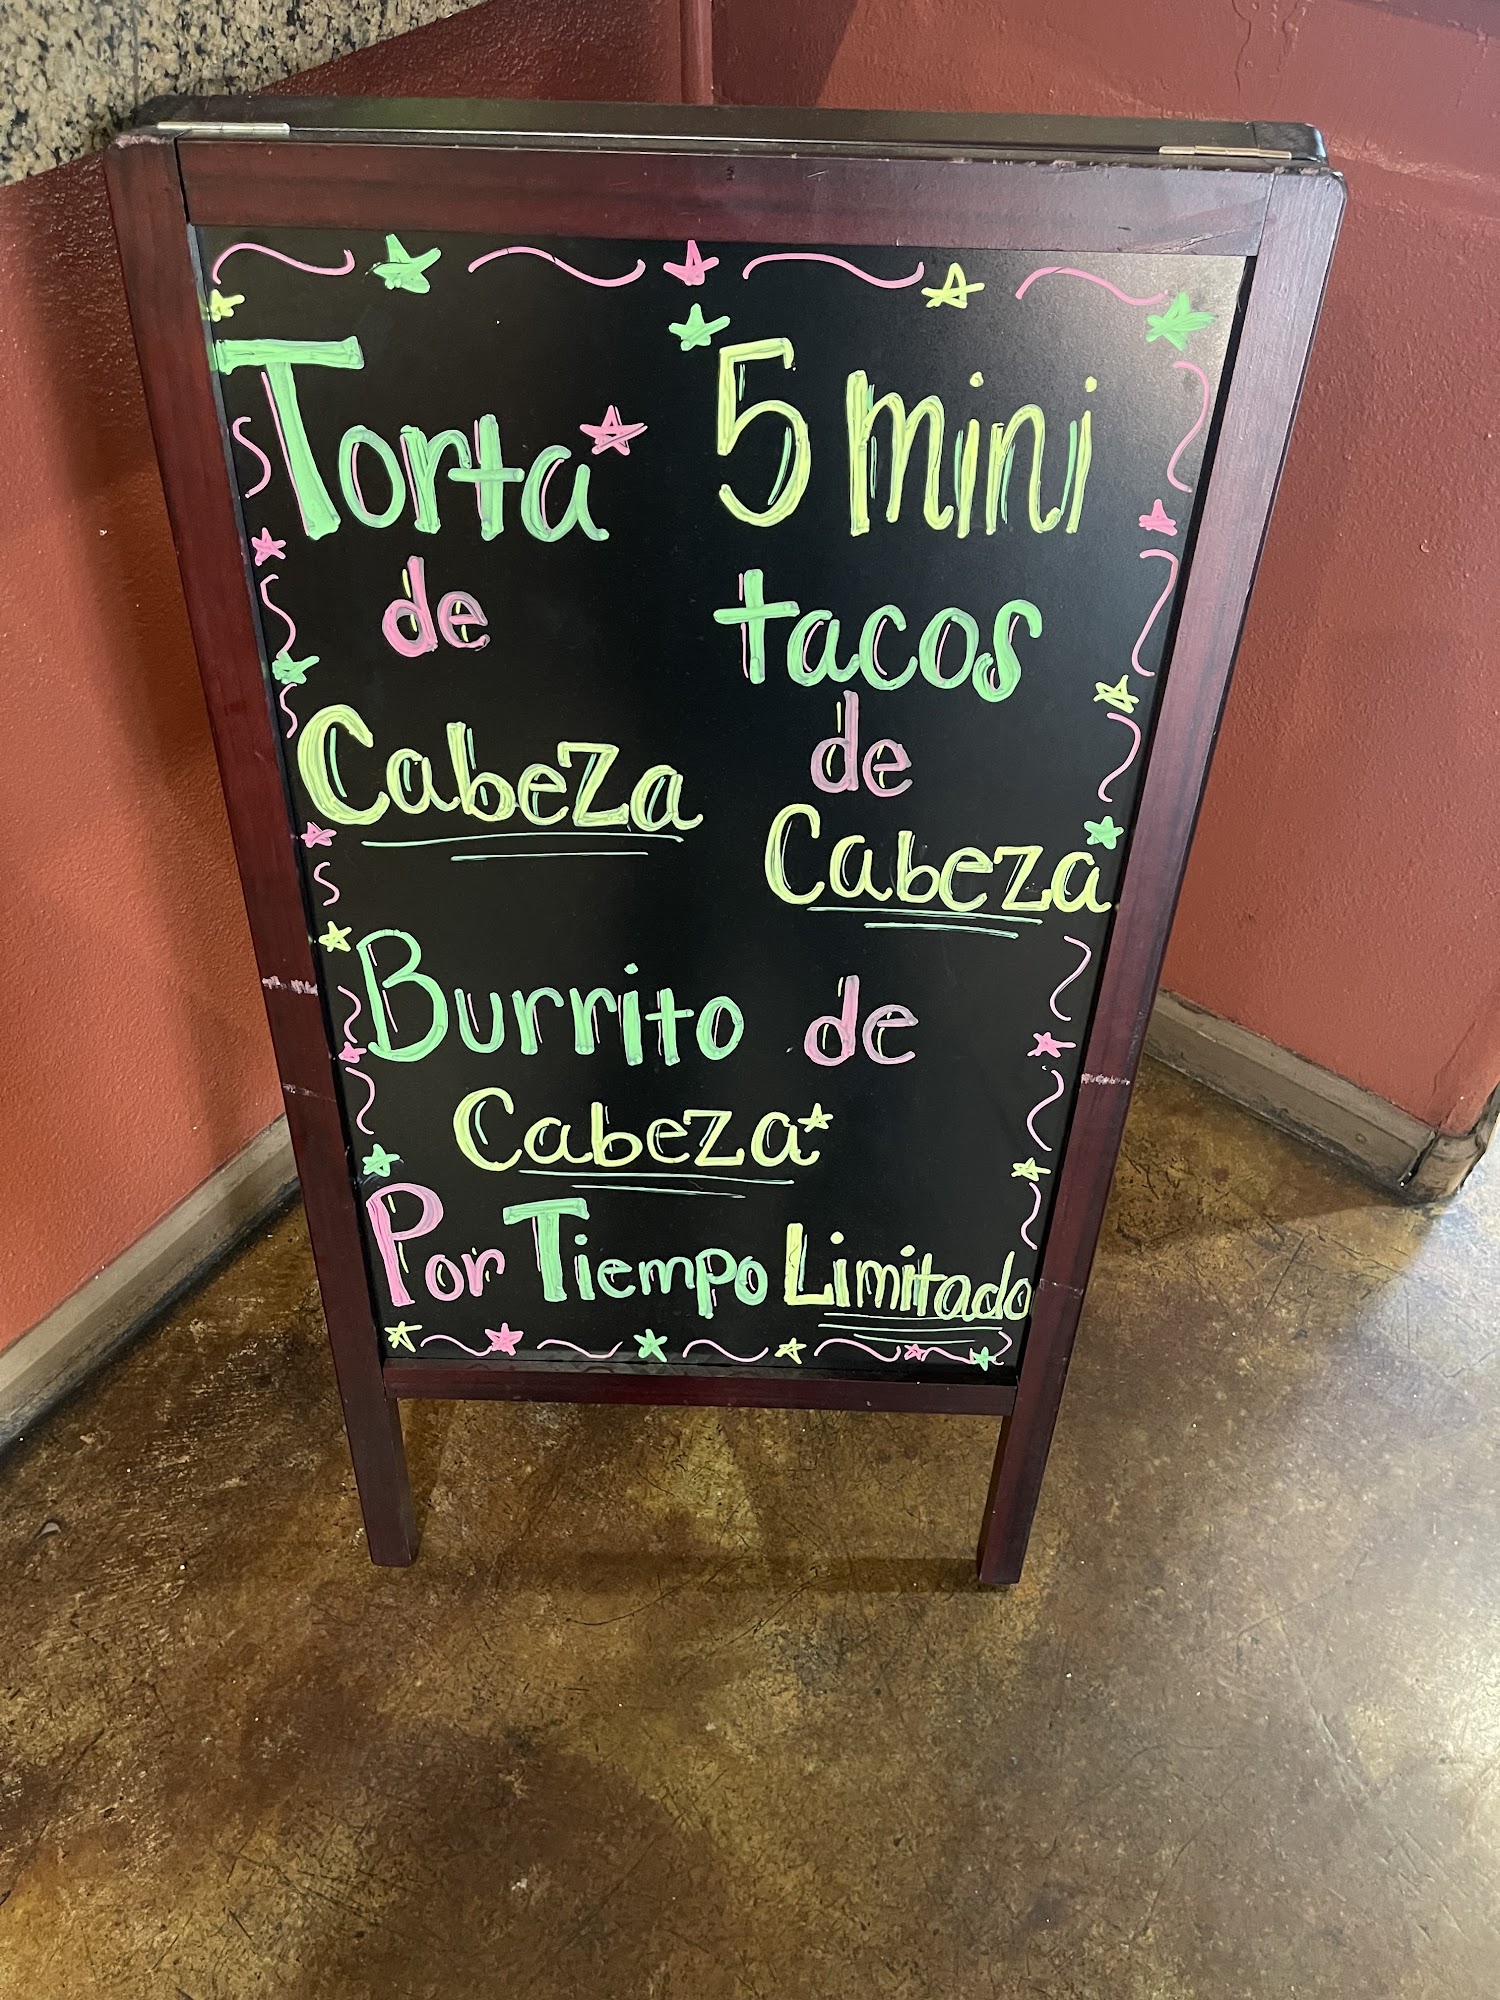 Torta
de
Cabeza
5 mini
tacos
de
Cabeza
Burrito de
Cabeza
Por Tiempo Limitado